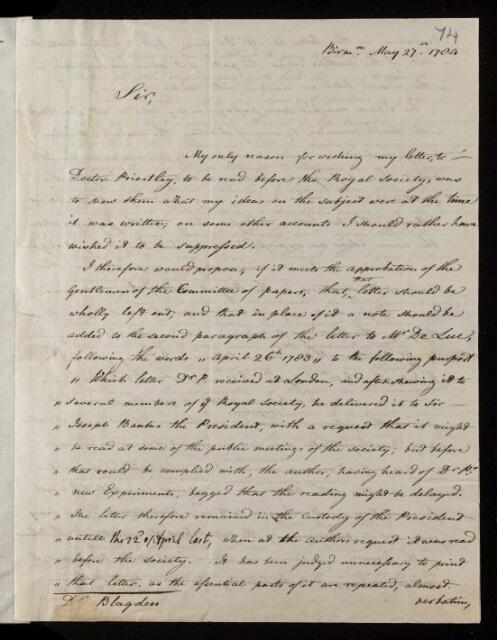 74
Birm.m May 27.th 1784
Sir,
My only reason for wishing my letter, to
Doctor Priestley, to be read before the Royal Society, was
to shew them what my ideas on the subject were at the time
it was written; on some other accounts I should rather have
wished it to be suppressed.
I therefore would propose, if it meets the approbation of the
Gentlemen of the Committee of papers, that, that letter should be
wholly left out, and that in place of it a note should be
added to the second paragraph of the letter to Mr De Luc,
following the words „ April 26th 1783 „ to the following purport
„ Which letter Dr P. received at London, and after shewing it to
„ several members of ye Royal Society, he delivered it to Sir
„ Joseph Banks the President, with a request that it might
„ be read at some of the public meetings of the society; but before
„ that could be complied with, the author, having heard of Dr P's
„ new Experiments, begged that the reading might be delayed.
„ The letter therefore remained in the Custody of the President
„ untill the 22d of April last, when at the authors request it was read
„ before the society. It has been judged unnecessary to print
„ that letter, as the essential parts of it are repeated, almost
Dr Blagden verbatim,